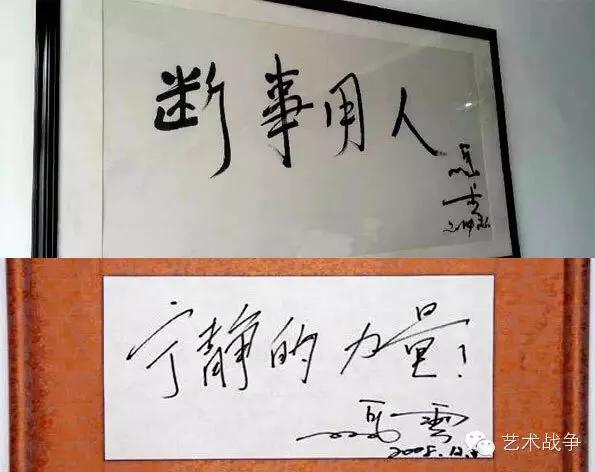 断事用人
馬雲
宁静的力量!
馬雲
2008.12.
艺术战争